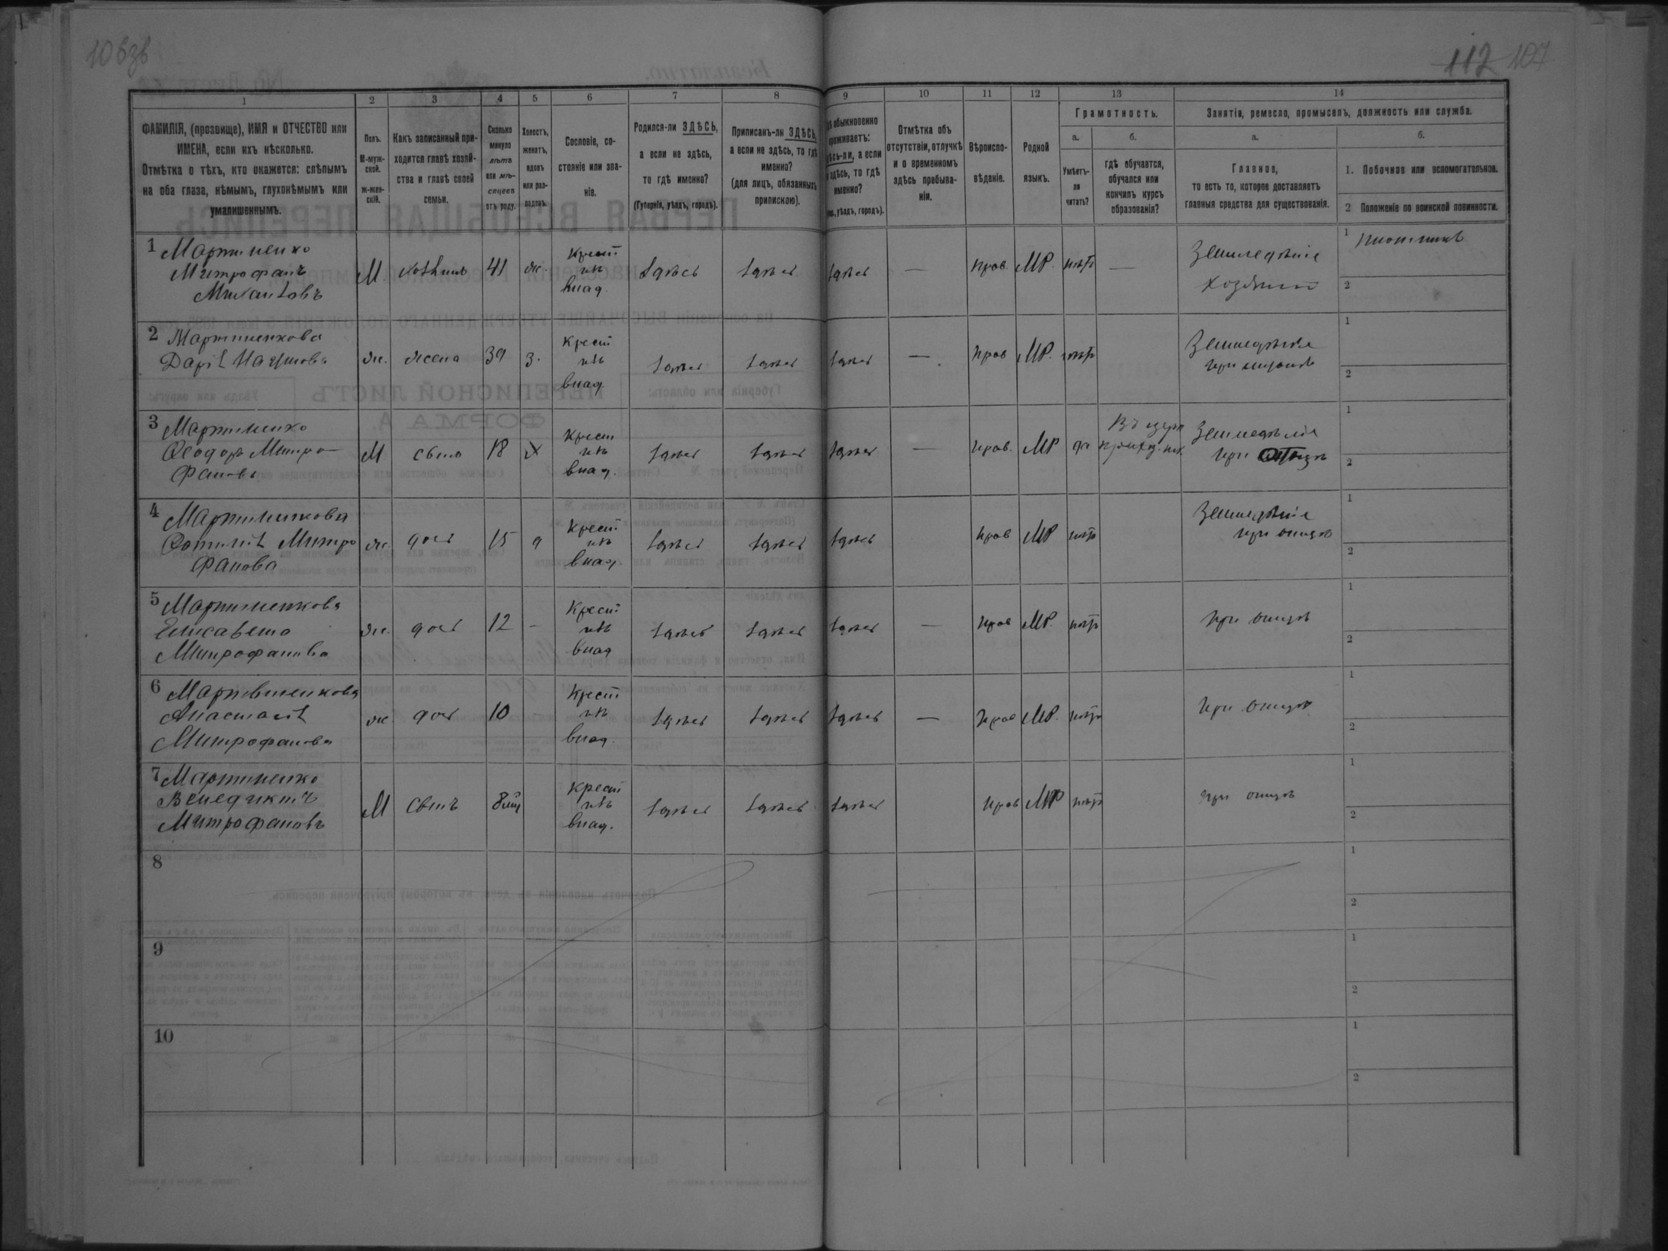 106зв
112 107
1 2 3 4 5 6 7 8 9 10 11 12 13 14
ФАМИЛІЯ, (прозвище), ИМЯ и ОТЧЕСТВО или
ИМЕНА, если ихъ нѣсколько.
Отмѣтка о тѣхъ, кто окажется: слѣпымъ
на оба глаза, нѣмымъ, глухонѣмымъ или
умалишеннымъ.
Полъ.
М-муж-
ской.
ж-жен-
скій.
Какъ записанный при-
ходится главѣ хозяй-
ства и главѣ своей
семьи.
Сколько
минуло
лѣтъ
или мѣ-
сяцевъ
отъ роду.
Холостъ,
женатъ,
вдовъ
или раз-
веденъ.
Сословіе, со-
стояніе или зва-
ніе.
Родился-ли ЗДѢСЬ,
а если не здѣсь,
то гдѣ именно?
(Губернія, уѣздъ, городъ).
Приписанъ-ли ЗДѢСЬ,
а если не здѣсь, то гдѣ
именно?
(для лицъ, обязанныхъ
припискою).
обыкновенно
проживаетъ:
здѣсь-ли, а если
не здѣсь, то гдѣ
именно?
уѣздъ, городъ).
Отмѣтка объ
отсутствіи, отлучкѣ
и о временномъ
здѣсь пребыва-
ніи.
Вѣроиспо-
вѣданіе.
Родной
языкъ.
Грамотность.
а.
Умѣетъ-
ли
читать?
б.
гдѣ обучается,
обучался или
кончилъ курсъ
образованія?
Занятія, ремесло, промыселъ, должность или служба.
а.
Главное,
то есть то, которое доставляетъ
главныя средства для существованія.
б.
1. Побочное или вспомогательное.
2 Положеніе по воинской повинности.
1 Мартиненко
Митрофанъ
Михаиловъ
М хозяинъ 41 ж.
Крест
изъ
влад
здѣсь здѣсь здѣсь — прав. МР. нѣтъ —
Земледѣліе
хозяинъ
1 плотникъ
2
2 Мартиненкова
Дарія Наумова
ж. жена 39 з.
Крест
изъ
влад
здѣсь здѣсь здѣсь — прав МР. нѣтъ
Земледѣліе
при мужѣ
1
2
3 Мартиненко
Ѳеодоръ Митро-
фановъ
М сынъ 18 х
Крест
изъ
влад
здѣсь здѣсь здѣсь прав. МР да
Въ церк
приход. шк.
Земледѣліе
при отцѣ
1
2
4 Мартиненкова
Митро
фанова
ж. доч 15 д
Крест
изъ
влад.
здѣсь здѣсь здѣсь прав МР нѣтъ
Земледѣліе
при отцѣ
1
2
5 Мартиненкова
Елисавета
Митрофанова
ж. доч 12 -
Крест
изъ
влад
здѣсь здѣсь здѣсь — прав МР. нѣтъ
при отцѣ
1
2
6 Мартиненкова
Анастасія
Митрофанова
ж. доч 10
Крест
изъ
влад.
здѣсь здѣсь здѣсь — прав МР. нѣтъ
при отцѣ
1
2
7 Мартиненко
Венедиктъ
Митрофановъ
М сынъ
Крест
изъ
влад.
здѣсь здѣсь здѣсь прав МР нѣтъ
при отцѣ
1
2
8
1
2
9
1
2
10
1
2